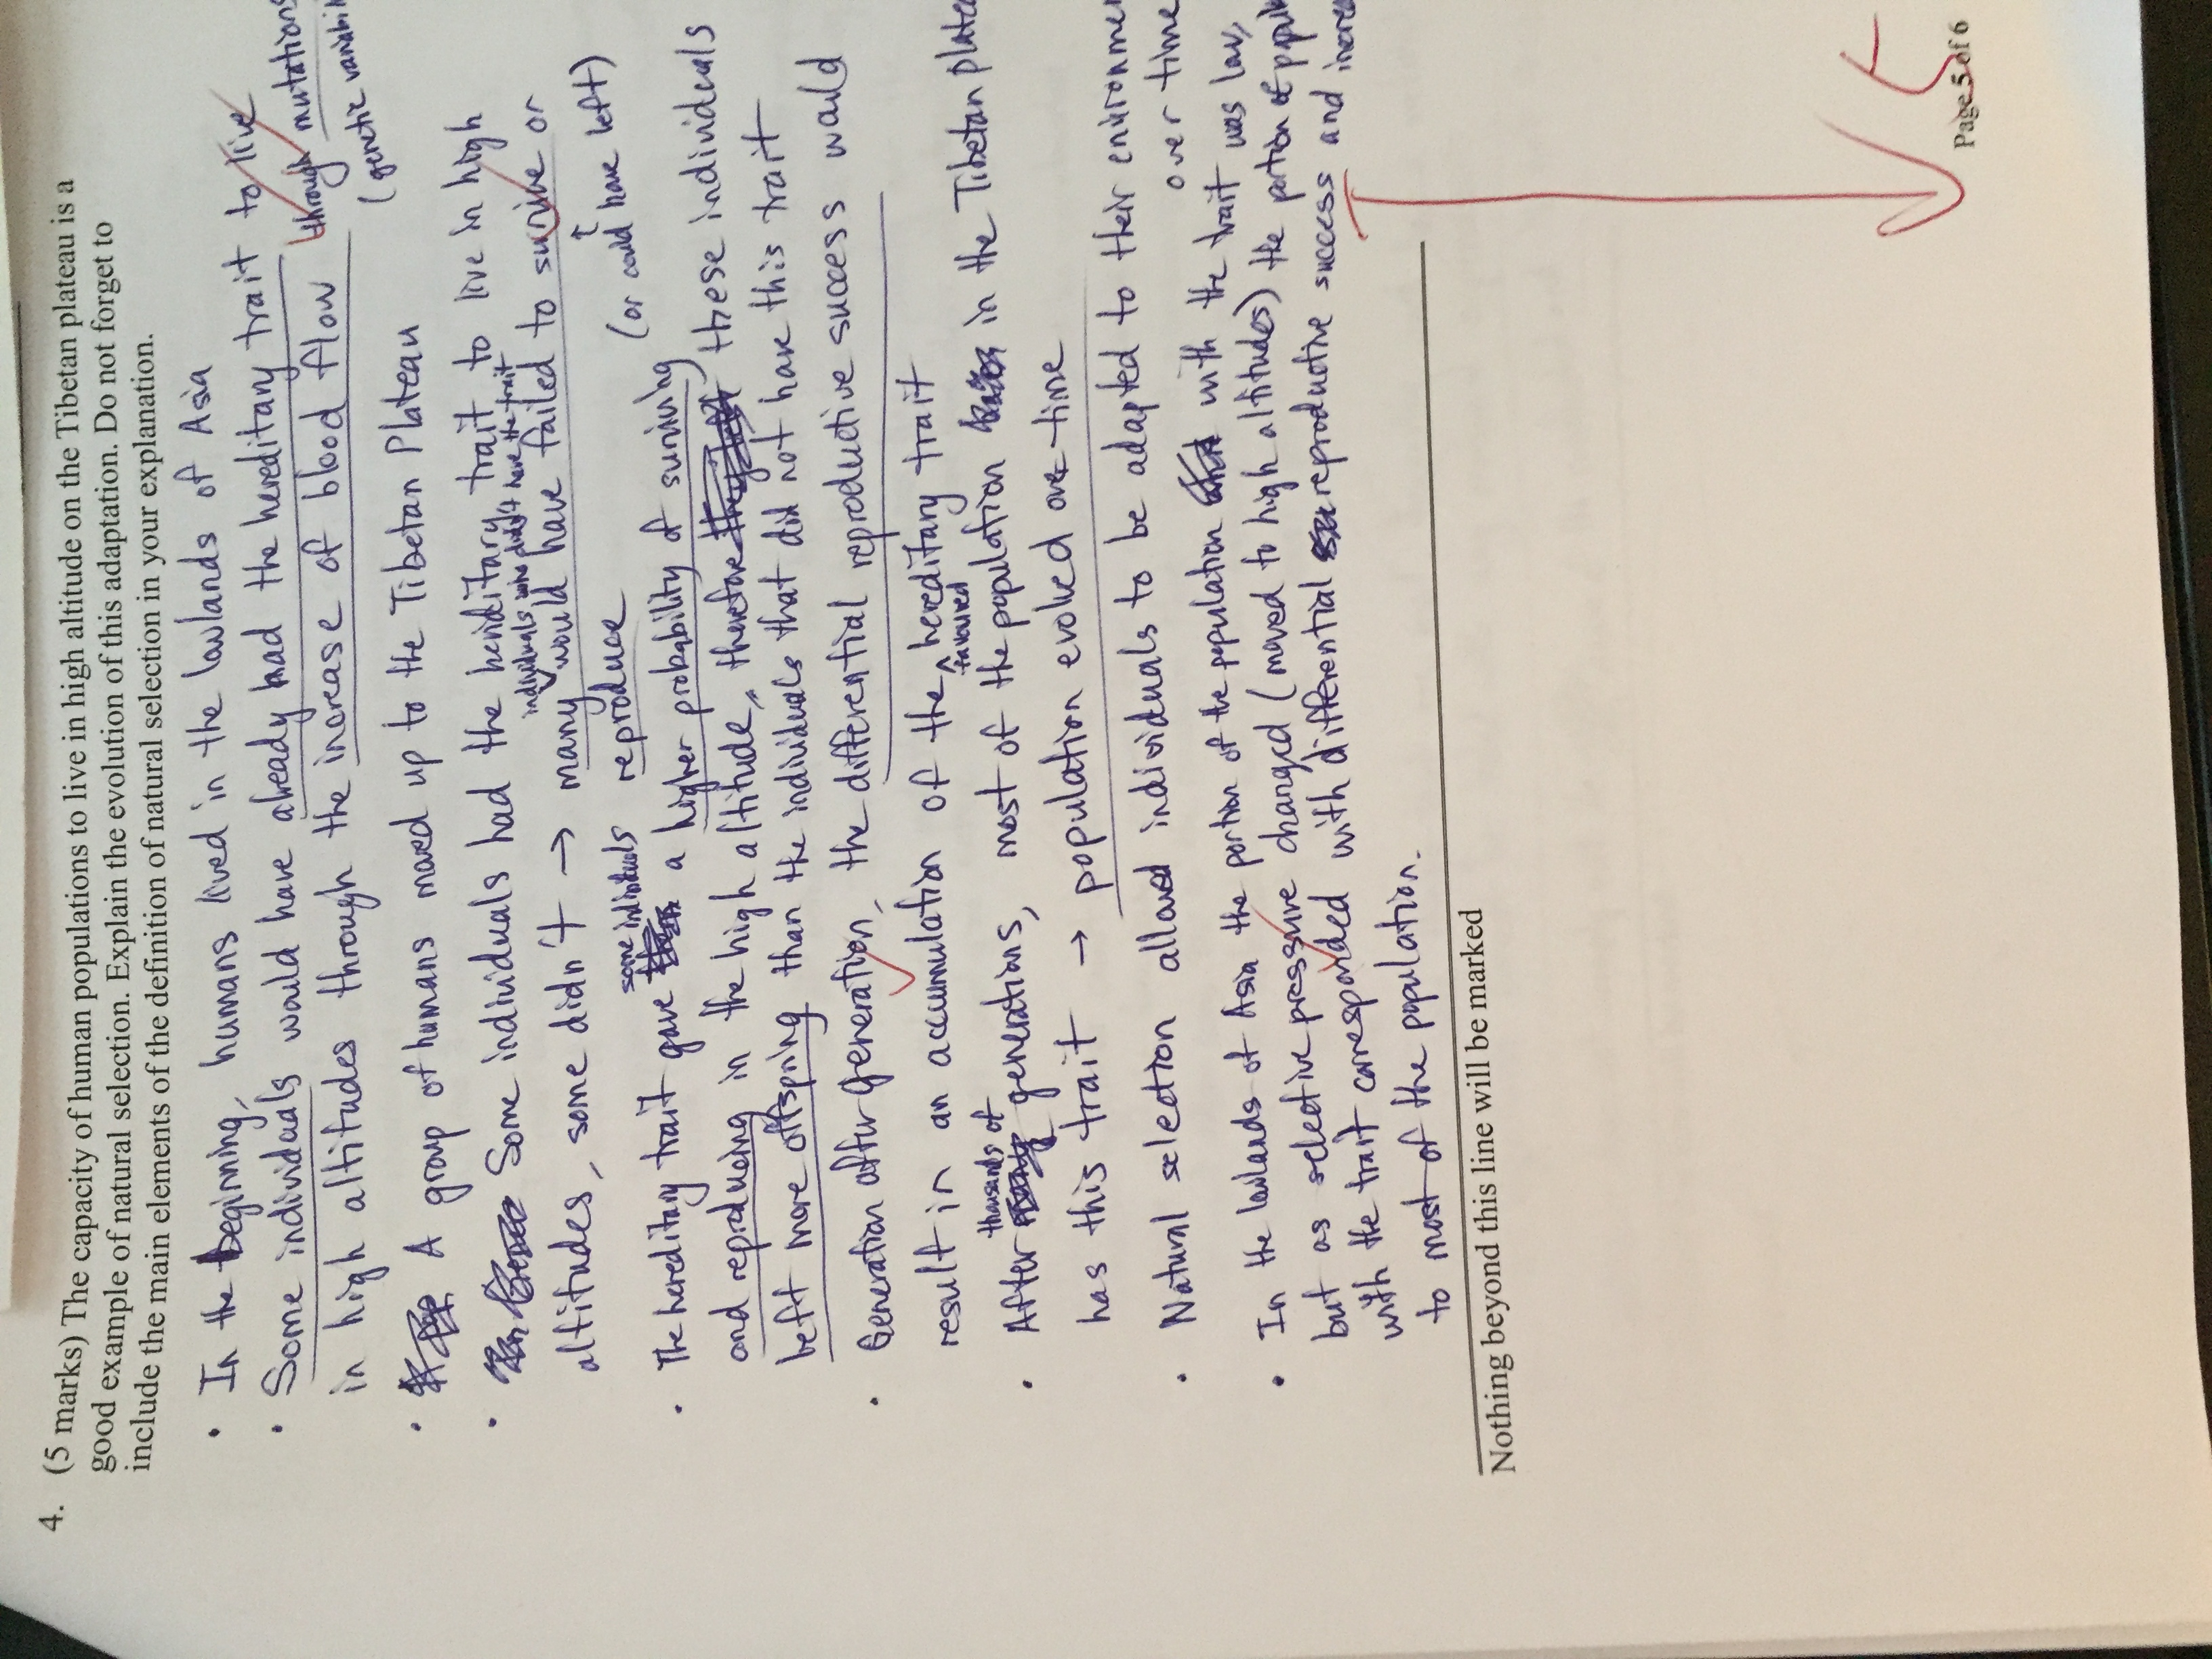 4. (5 marks) The capacity of human populations to live in high altitude on the Tibetan plateau is a
good example of natural selection. Explain the evolution of this adaptation. Do not forget to
include the main elements of the definition of natural selection in your explanation.
• In the beginning, humans lived in the lowlands of Asia
• Some individuals would have already had the hereditary trait to live
in high altitudes through the increase of blood flow
through mutations
(genetic variabil
• A group of humans moved up to the Tibetan Plateau
• Some individuals had the heriditary trait to live in high
altitudes, some didn't → many individuals who didn't have the trait would have failed to survive or
reproduce
(or could have left)
• The hereditary trait gave some individuals a higher probability of surviving
and reproducing in the high altitude, therefore these individuals
left more offspring than the individuals that did not have this trait
• Generation after generation, the differential reproductive success would
result in an accumulation of the favoured hereditary trait
• After thousands of generations, most of the population in the Tibetan platea
has this trait → population evolved over time
• Natural selection allowed individuals to be adapted to their environmen
over time
• In the lowlands of Asia the portion of the population with the trait was low,
but as selective pressure changed (moved to high altitudes) the portion of popul
with the trait corresponded with differential reproductive success and increa
to most of the population.
Nothing beyond this line will be marked
5
Page 5 of 6